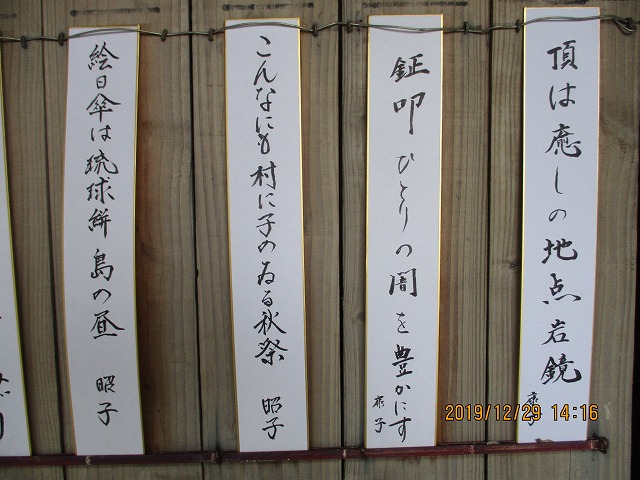 頂は癒しの地点岩鏡
鉦叩ひとりの闇を豊かにす
子
こんなにも村に子のゐる秋祭
昭子
絵日傘は琉球絣島の昼
昭子
2019/12/29 14:16